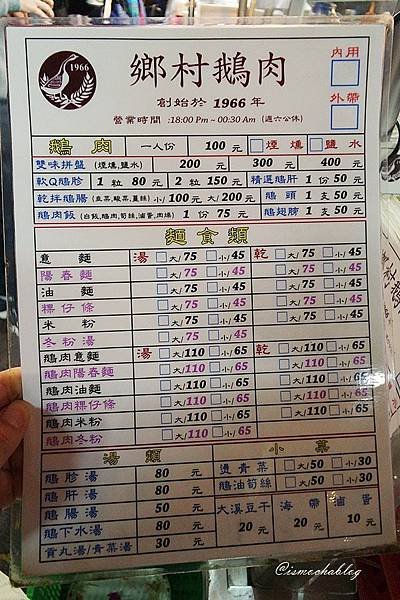 1966
鄉村鵝肉
創始於 1966 年
營業時間 :18:00 Pm ~ 00:30 Am (週六公休)
內用
外帶
鵝肉 一人份 100 元 □煙燻 □鹽水
雙味拼盤 (煙燻,鹽水) 200 元 300 元 400 元
軟Q鵝胗 1 粒 80 元 2 粒 150 元 精選鵝肝 1 份 50 元
乾拌鵝腸 (韭菜,酸菜,薑絲) 小/100 元 大/200 元 鵝頭 1 支 50 元
鵝肉飯 (白飯,鵝肉,筍絲,滷蛋,肉燥) 1 份 75 元 鵝翅膀 1 支 50 元
麵食類
意麵 湯 □大/75 □小/45 乾 □大/75 □小/45
陽春麵 □大/75 □小/45 □大/75 □小/45
油麵 □大/75 □小/45 □大/75 □小/45
粿仔條 □大/75 □小/45 □大/75 □小/45
米粉 □大/75 □小/45 □大/75 □小/45
冬粉湯 □大/75 □小/45
鵝肉意麵 湯 □大/110 □小/65 乾 □大/110 □小/65
鵝肉陽春麵 □大/110 □小/65 □大/110 □小/65
鵝肉油麵 □大/110 □小/65 □大/110 □小/65
鵝肉粿仔條 □大/110 □小/65 □大/110 □小/65
鵝肉米粉 □大/110 □小/65 □大/110 □小/65
鵝肉冬粉 □大/110 □小/65
湯類
鵝胗湯 80 元
鵝肝湯 80 元
鵝腸湯 50 元
鵝下水湯 80 元
貢丸湯/青菜湯 30 元
小菜
燙青菜 □大/50 □小/30
鵝油筍絲 □大/50 □小/30
大溪豆干 海帶 滷蛋
20 元 20 元 10 元
@ismochablog